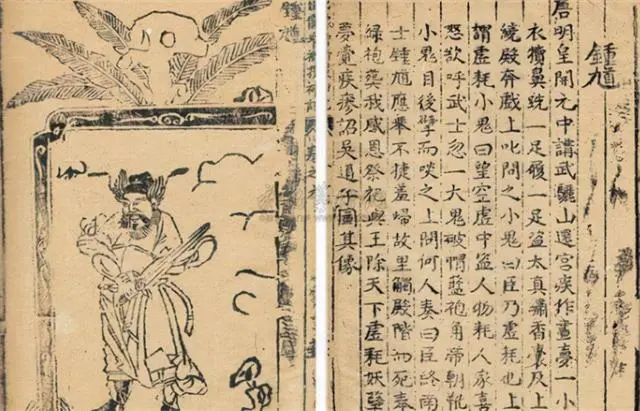 鍾馗
唐明皇開元中講武驪山還宮疾作晝夢一小
衣犢鼻跣一足履一足盜太真繡香囊及上
繞殿奔戲上叱問之小鬼曰臣乃虛耗也上
謂虛耗小鬼曰望空虛中盜人物耗人家喜
怒欲呼武士忽一大鬼破帽藍袍角帶朝靴
小鬼目後擘而啖之上問何人奏曰臣終南
士鍾馗應舉不捷羞歸故里觸殿階而死奉
綠袍葬我感恩祭祀與王除天下虛耗妖孽
夢覺疾瘳詔吳道子圖其像
鍾馗